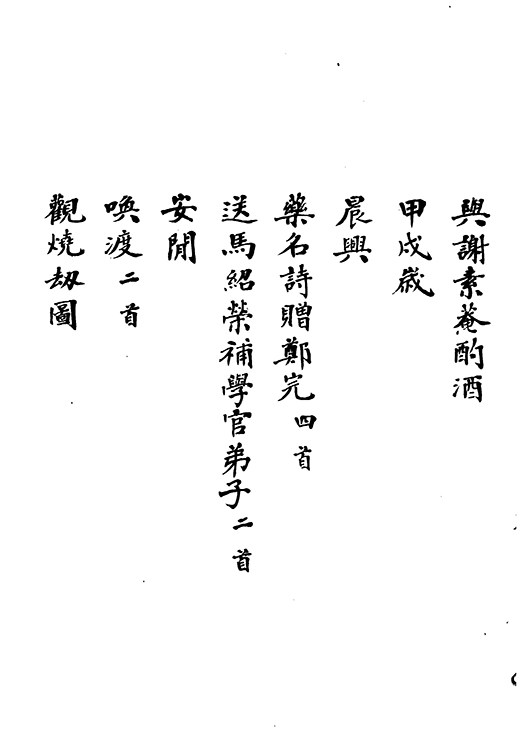 與謝素菴酌酒
甲戌歲
晨興
藥名詩贈鄭完四首
送馬紹榮補學官弟子二首
安閒
喚渡二首
觀燒劫圖